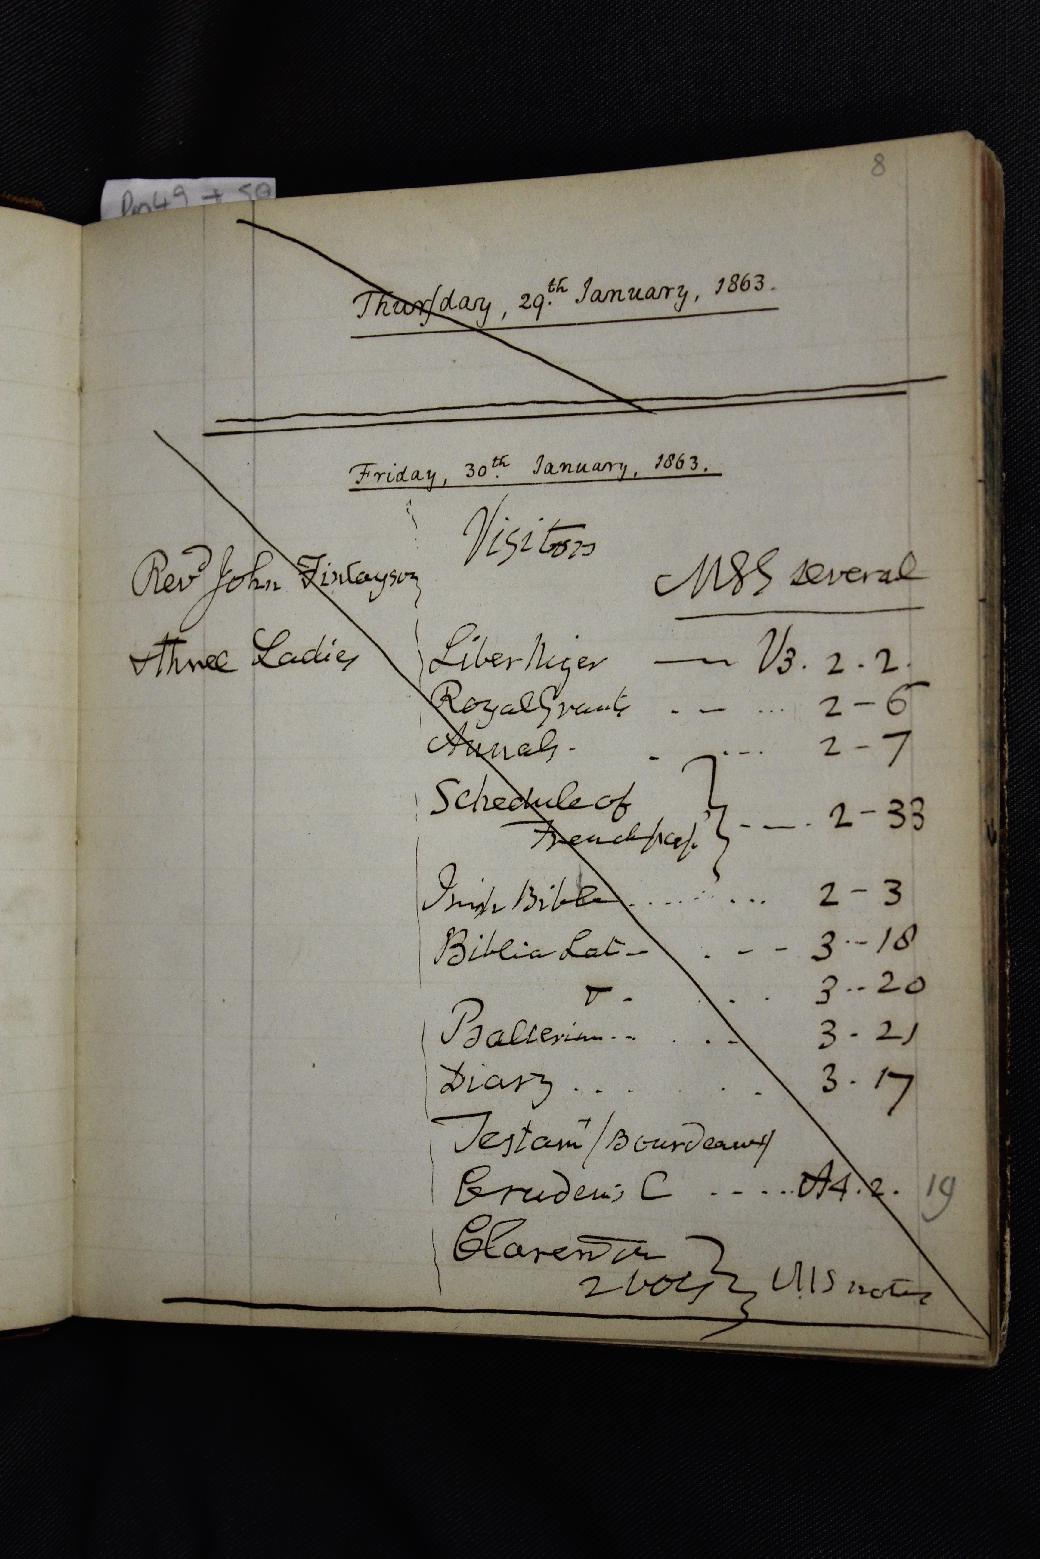 8
Thursday, 29th January, 1863.
Friday, 30th January, 1863.
Visitors
Revd John Finlayson
MSS several
& three Ladies
Liber Niger — V3. 2. 2.
Royal Grants . - ... 2 - 6
Annals - . ... 2 - 7
Schedule of
French pap. } - - . 2 - 33
Irish Bible ........ 2 - 3
Biblia Lat - . - - 3 - 18
- . . 3 - 20
Psalterium - - . . . 3 - 21
Diary . . . . 3 - 17
Testamt (Bourdeaux)
Cruden's C .... A4. 2. 19
2 vols } MS notes